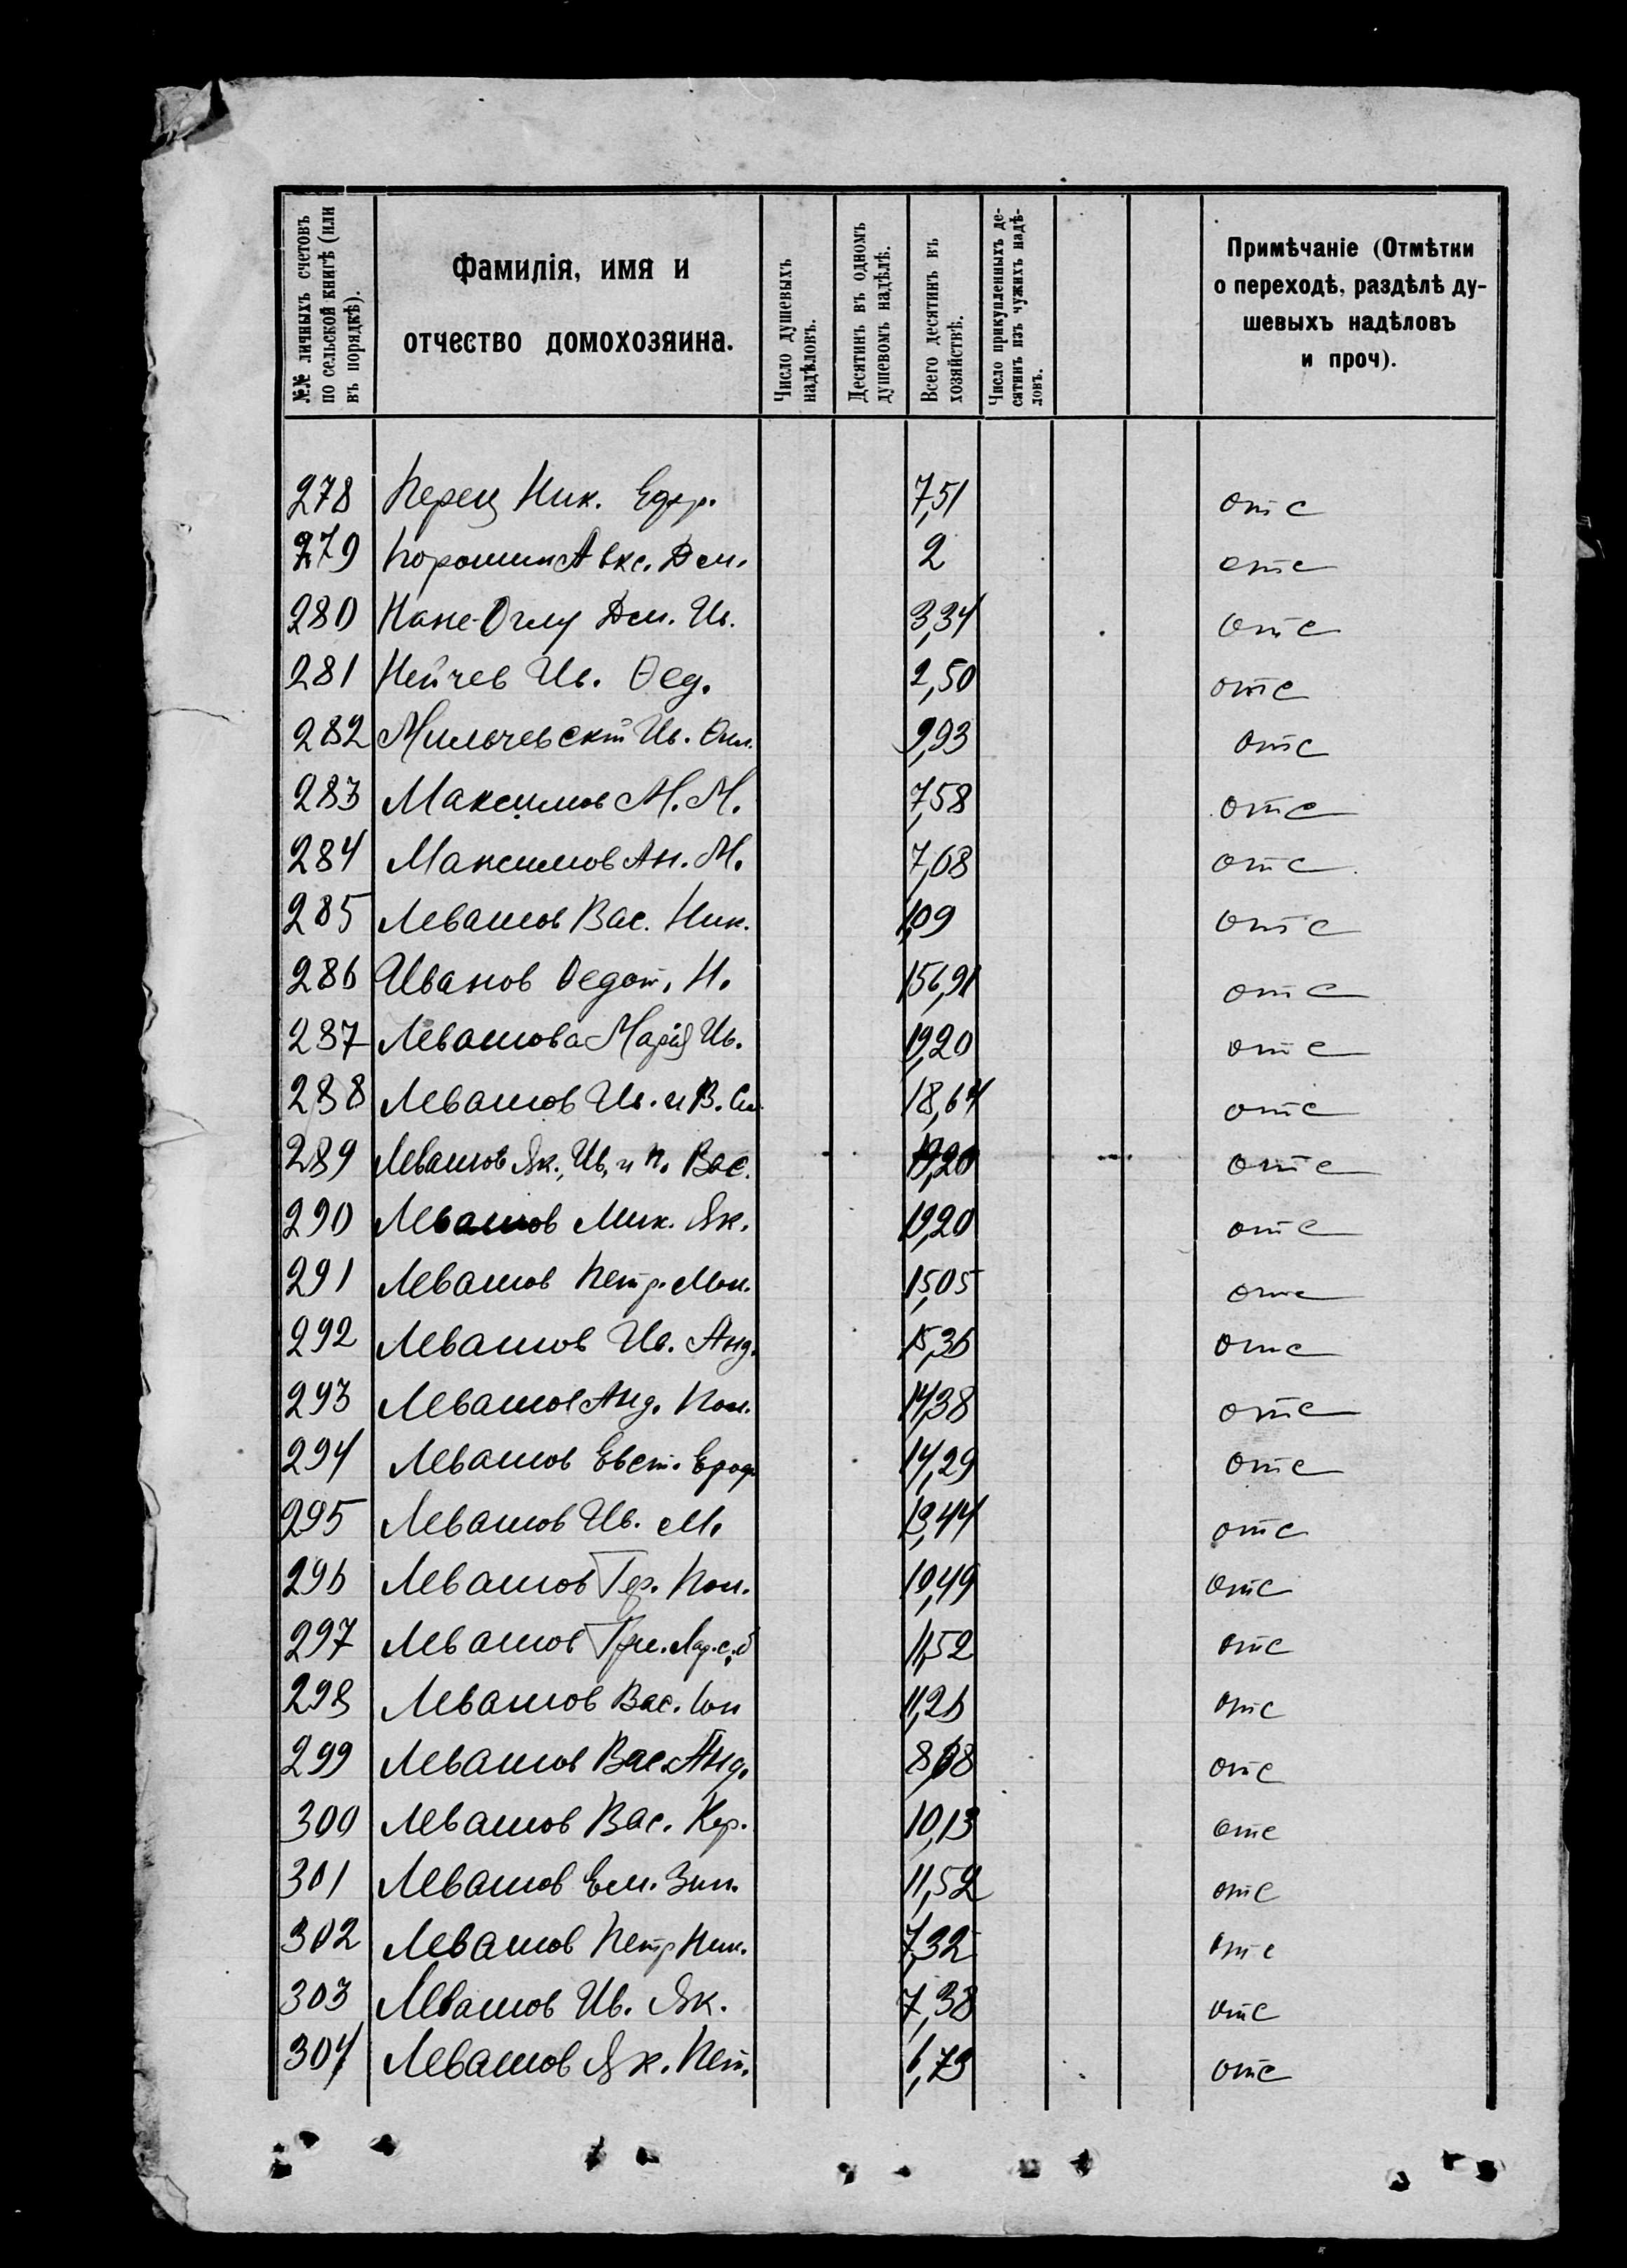 №№ личныхъ счетовъ
по сельской книгѣ (или
въ порядкѣ).
Фамилія, имя и
отчество домохозяина.
Число душевыхъ
надѣловъ.
Десятинъ въ одномъ
душевомъ надѣлѣ.
Всего десятинъ въ
хозяйствѣ.
Число прикупленныхъ де-
сятинъ изъ чужихъ надѣ-
ловъ.
Примѣчаніе (Отмѣтки
о переходѣ, раздѣлѣ ду-
шевыхъ надѣловъ
и проч).
278 Ник. 7,51 отс
279 Дм. 2 отс
280 Дм. Ив. 3,34 отс
281 Нейчев Ив. Ѳед. 2,50 отс
282 Мильчевскій Ив. 9,93 отс
283 Максимов М. М. 7,58 отс
284 Максимов Ан. М. 7,08 отс
285 Левашов Вас. Ник. 1,09 отс
286 Иванов Ѳедот. Н. 156,91 отс
287 Левашова Марія Ив. 19,20 отс
288 Левашов Ив. и В. 18,64 отс
289 Левашов Як., Ив. и П. Вас. 19,20 отс
290 Левашов Мих. Як. 19,20 отс
291 Левашов Петр. 15,05 отс
292 Левашов Ив. Анд. 15,36 отс
293 Левашов Анд. Кон. 14,38 отс
294 Левашов Евст. Ероф 14,29 отс
295 Левашов Ив. М. 13,44 отс
296 Левашов Гер. Кон. 10,49 отс
297 Левашов 11,52 отс
298 Левашов Вас. 11,26 отс
299 Левашов Вас. Анд. отс
300 Левашов Вас. 10,13 отс
301 Левашов Ем. Зин. 11,52 отс
302 Левашов Петр Ник. 7,32 отс
303 Левашов Ив. Як. 7,38 отс
304 Левашов Як. Пет. 6,73 отс